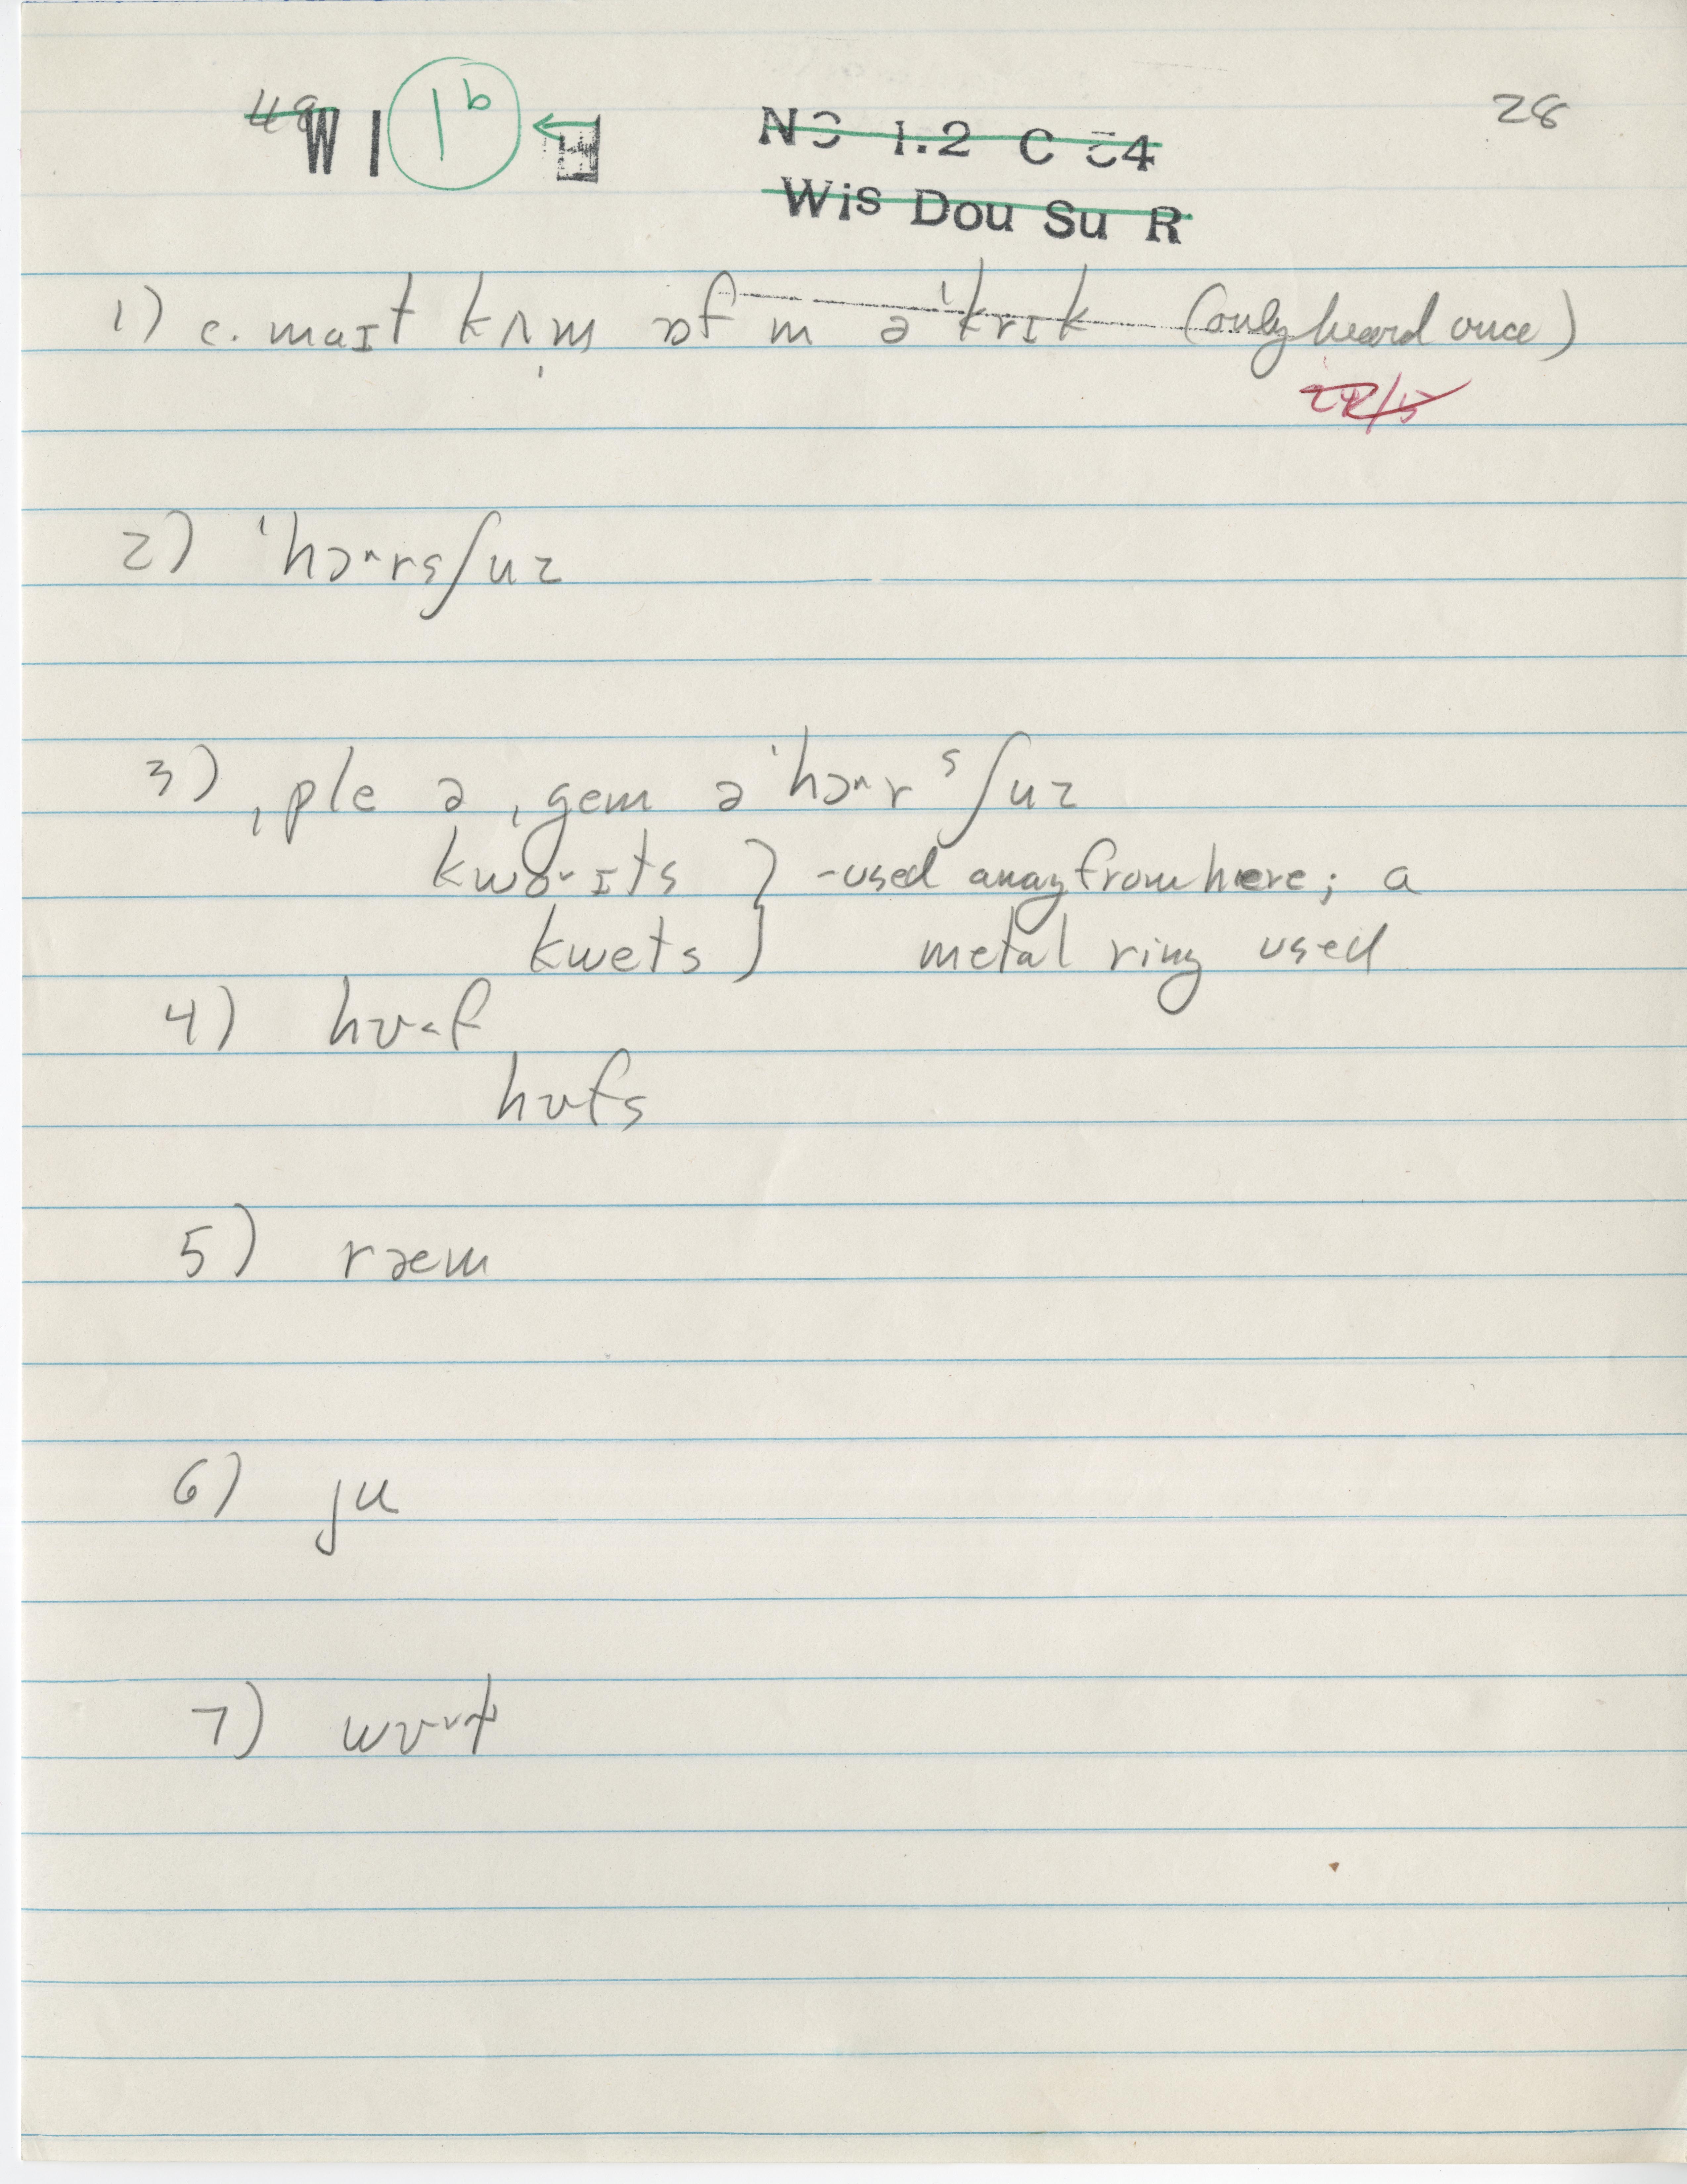 W I 1b 28
N3 1.2 C 54
Wis Dou Su R
1) c. maɪt kʌm ɒf m ə ˈkrɪk (only heard once)
2) ˈhɔ˞rsʃuz
3) ˌple ə ˌgem ə ˈhɔ˞r ˢʃuz
kwɔ˞ɪts } -used away from here; a
kwets } metal ring used
4) hʊ˂f
hʊfs
5) ræm
6) ju
7)